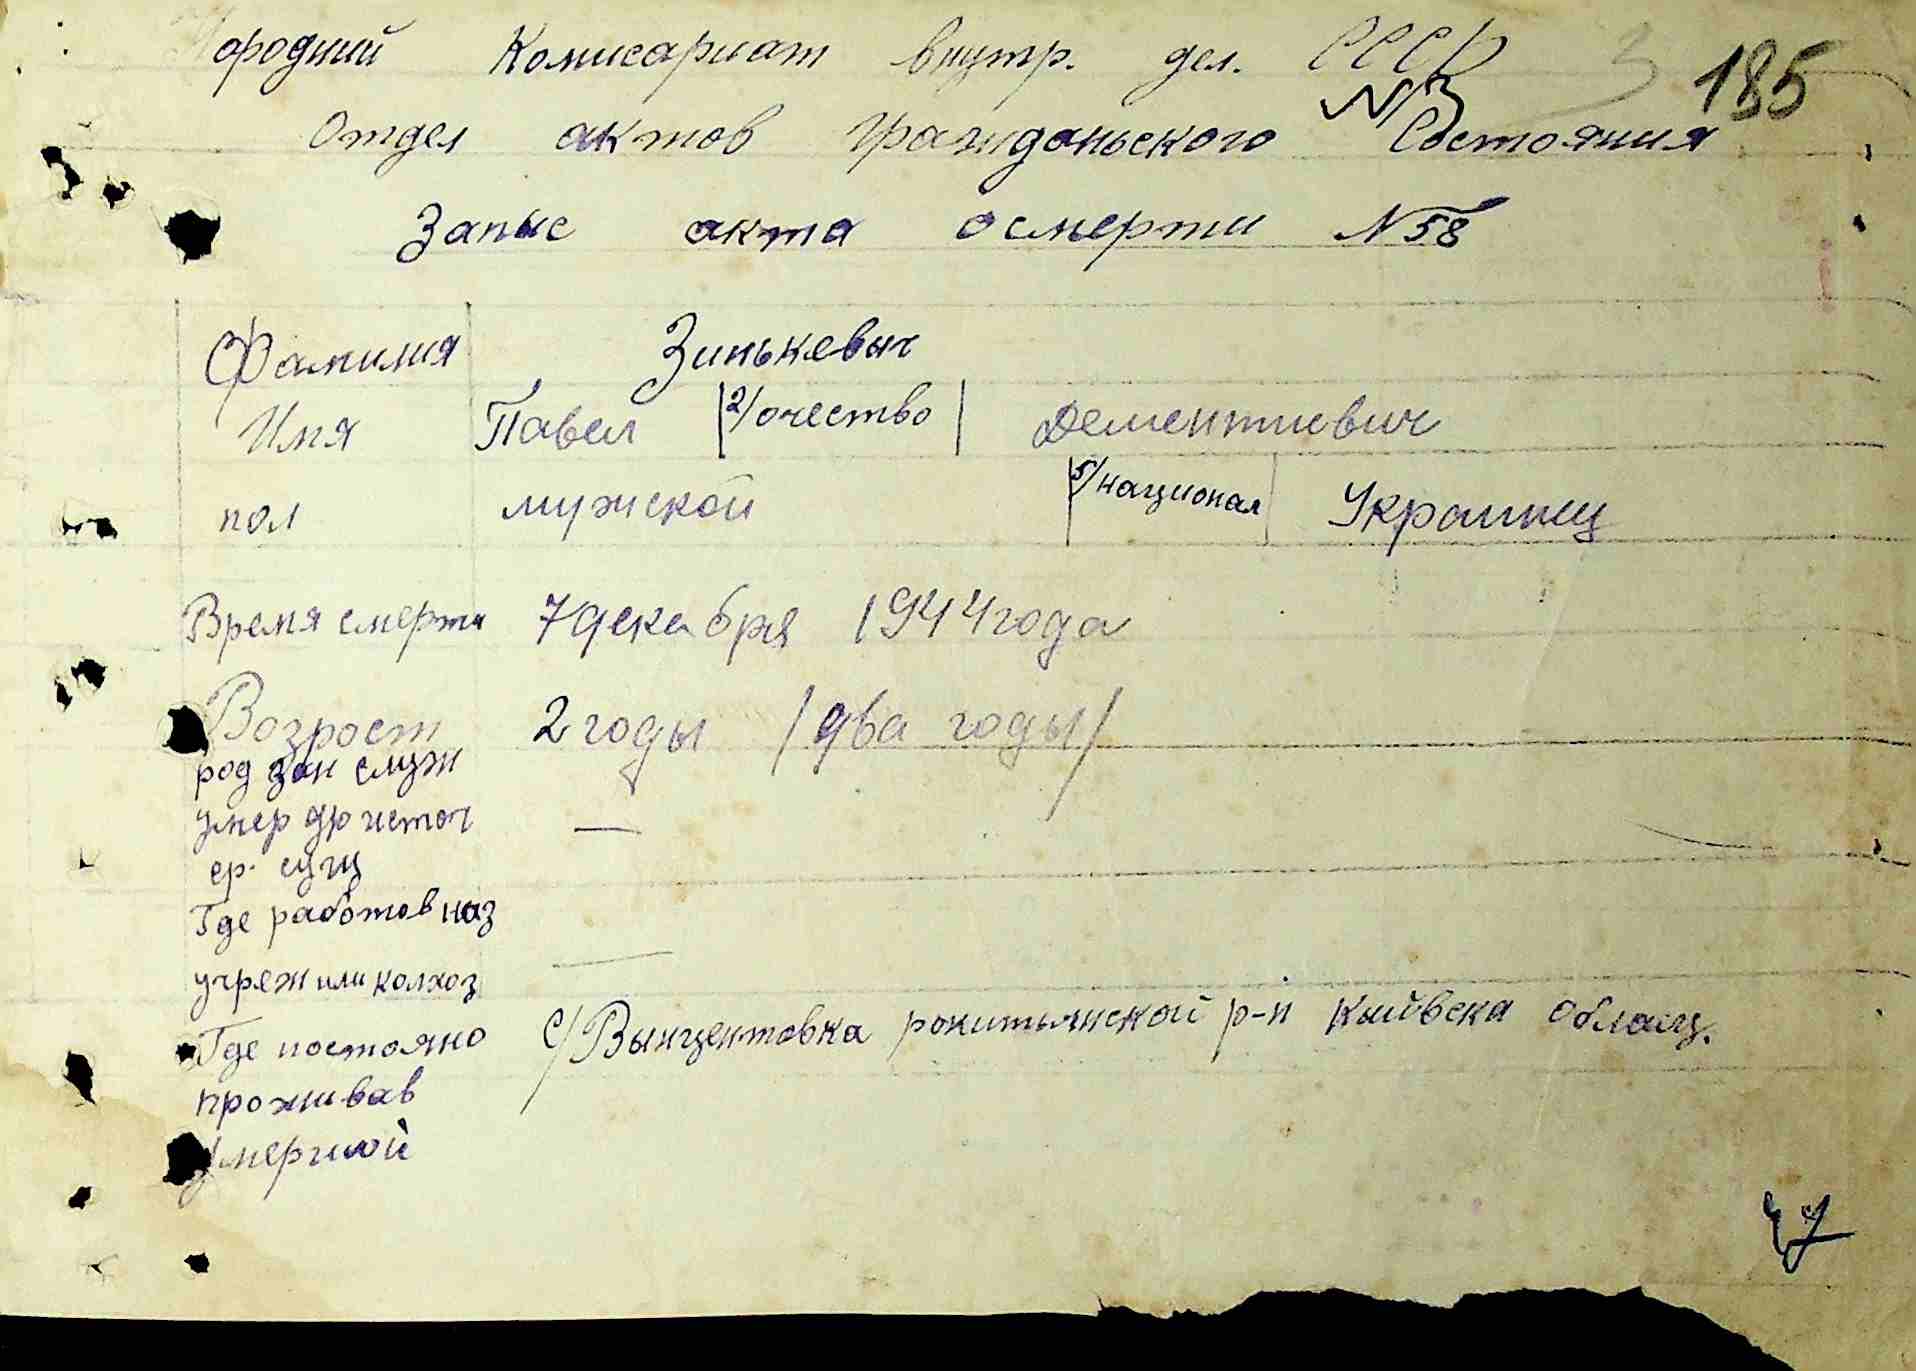 Народний Комисариат внутр. дел. СССР
185
N3
Отдел актов гражданьского Состояния
Запыс акта осмерти N58
Фамилия Зинькевыч
Имя Павел 2/очество Дементиевич
пол мужской 5/национал Украинец
Время смерти 7 декабря 1944 года
Возрост 2 годы /два годы/
род зан служ
умер др источ —
ср. сущ
Где работав наз
учреж или колхоз —
Где постояно с/Вынцентовка рокитьянской р-н Кыйвска Облащ.
проживав
умерший
47